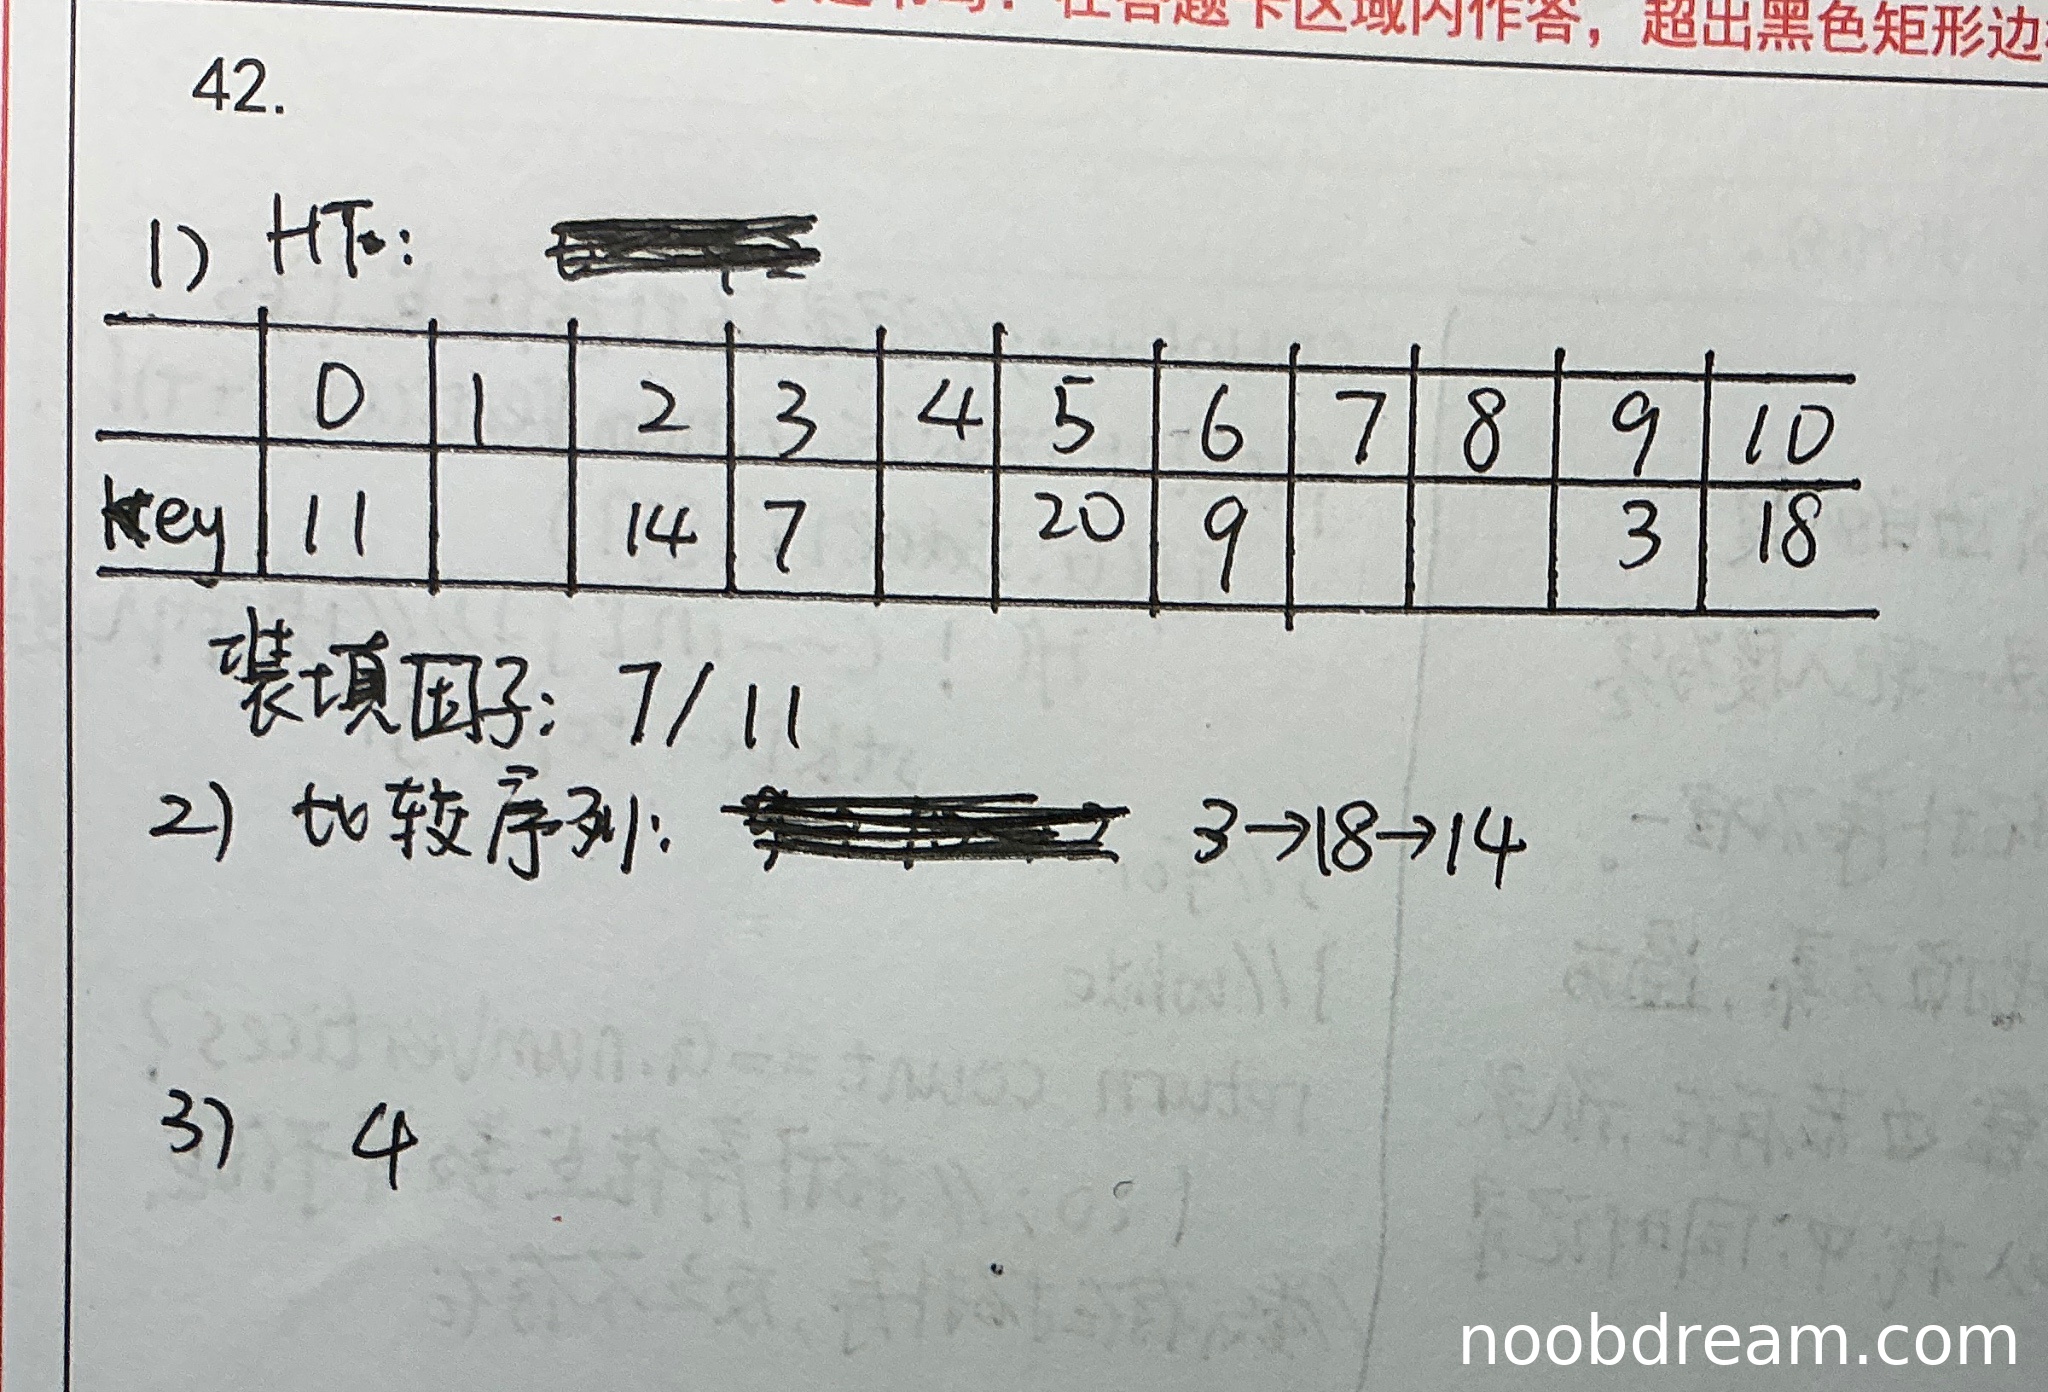 在答题卡区域内作答，超出黑色矩形边
42.
1) HT:
0 1 2 3 4 5 6 7 8 9 10
key 11 14 7 20 9 3 18
装填因子: 7/11
2) 比较序列: 3→18→14
3) 4
noobdream.com